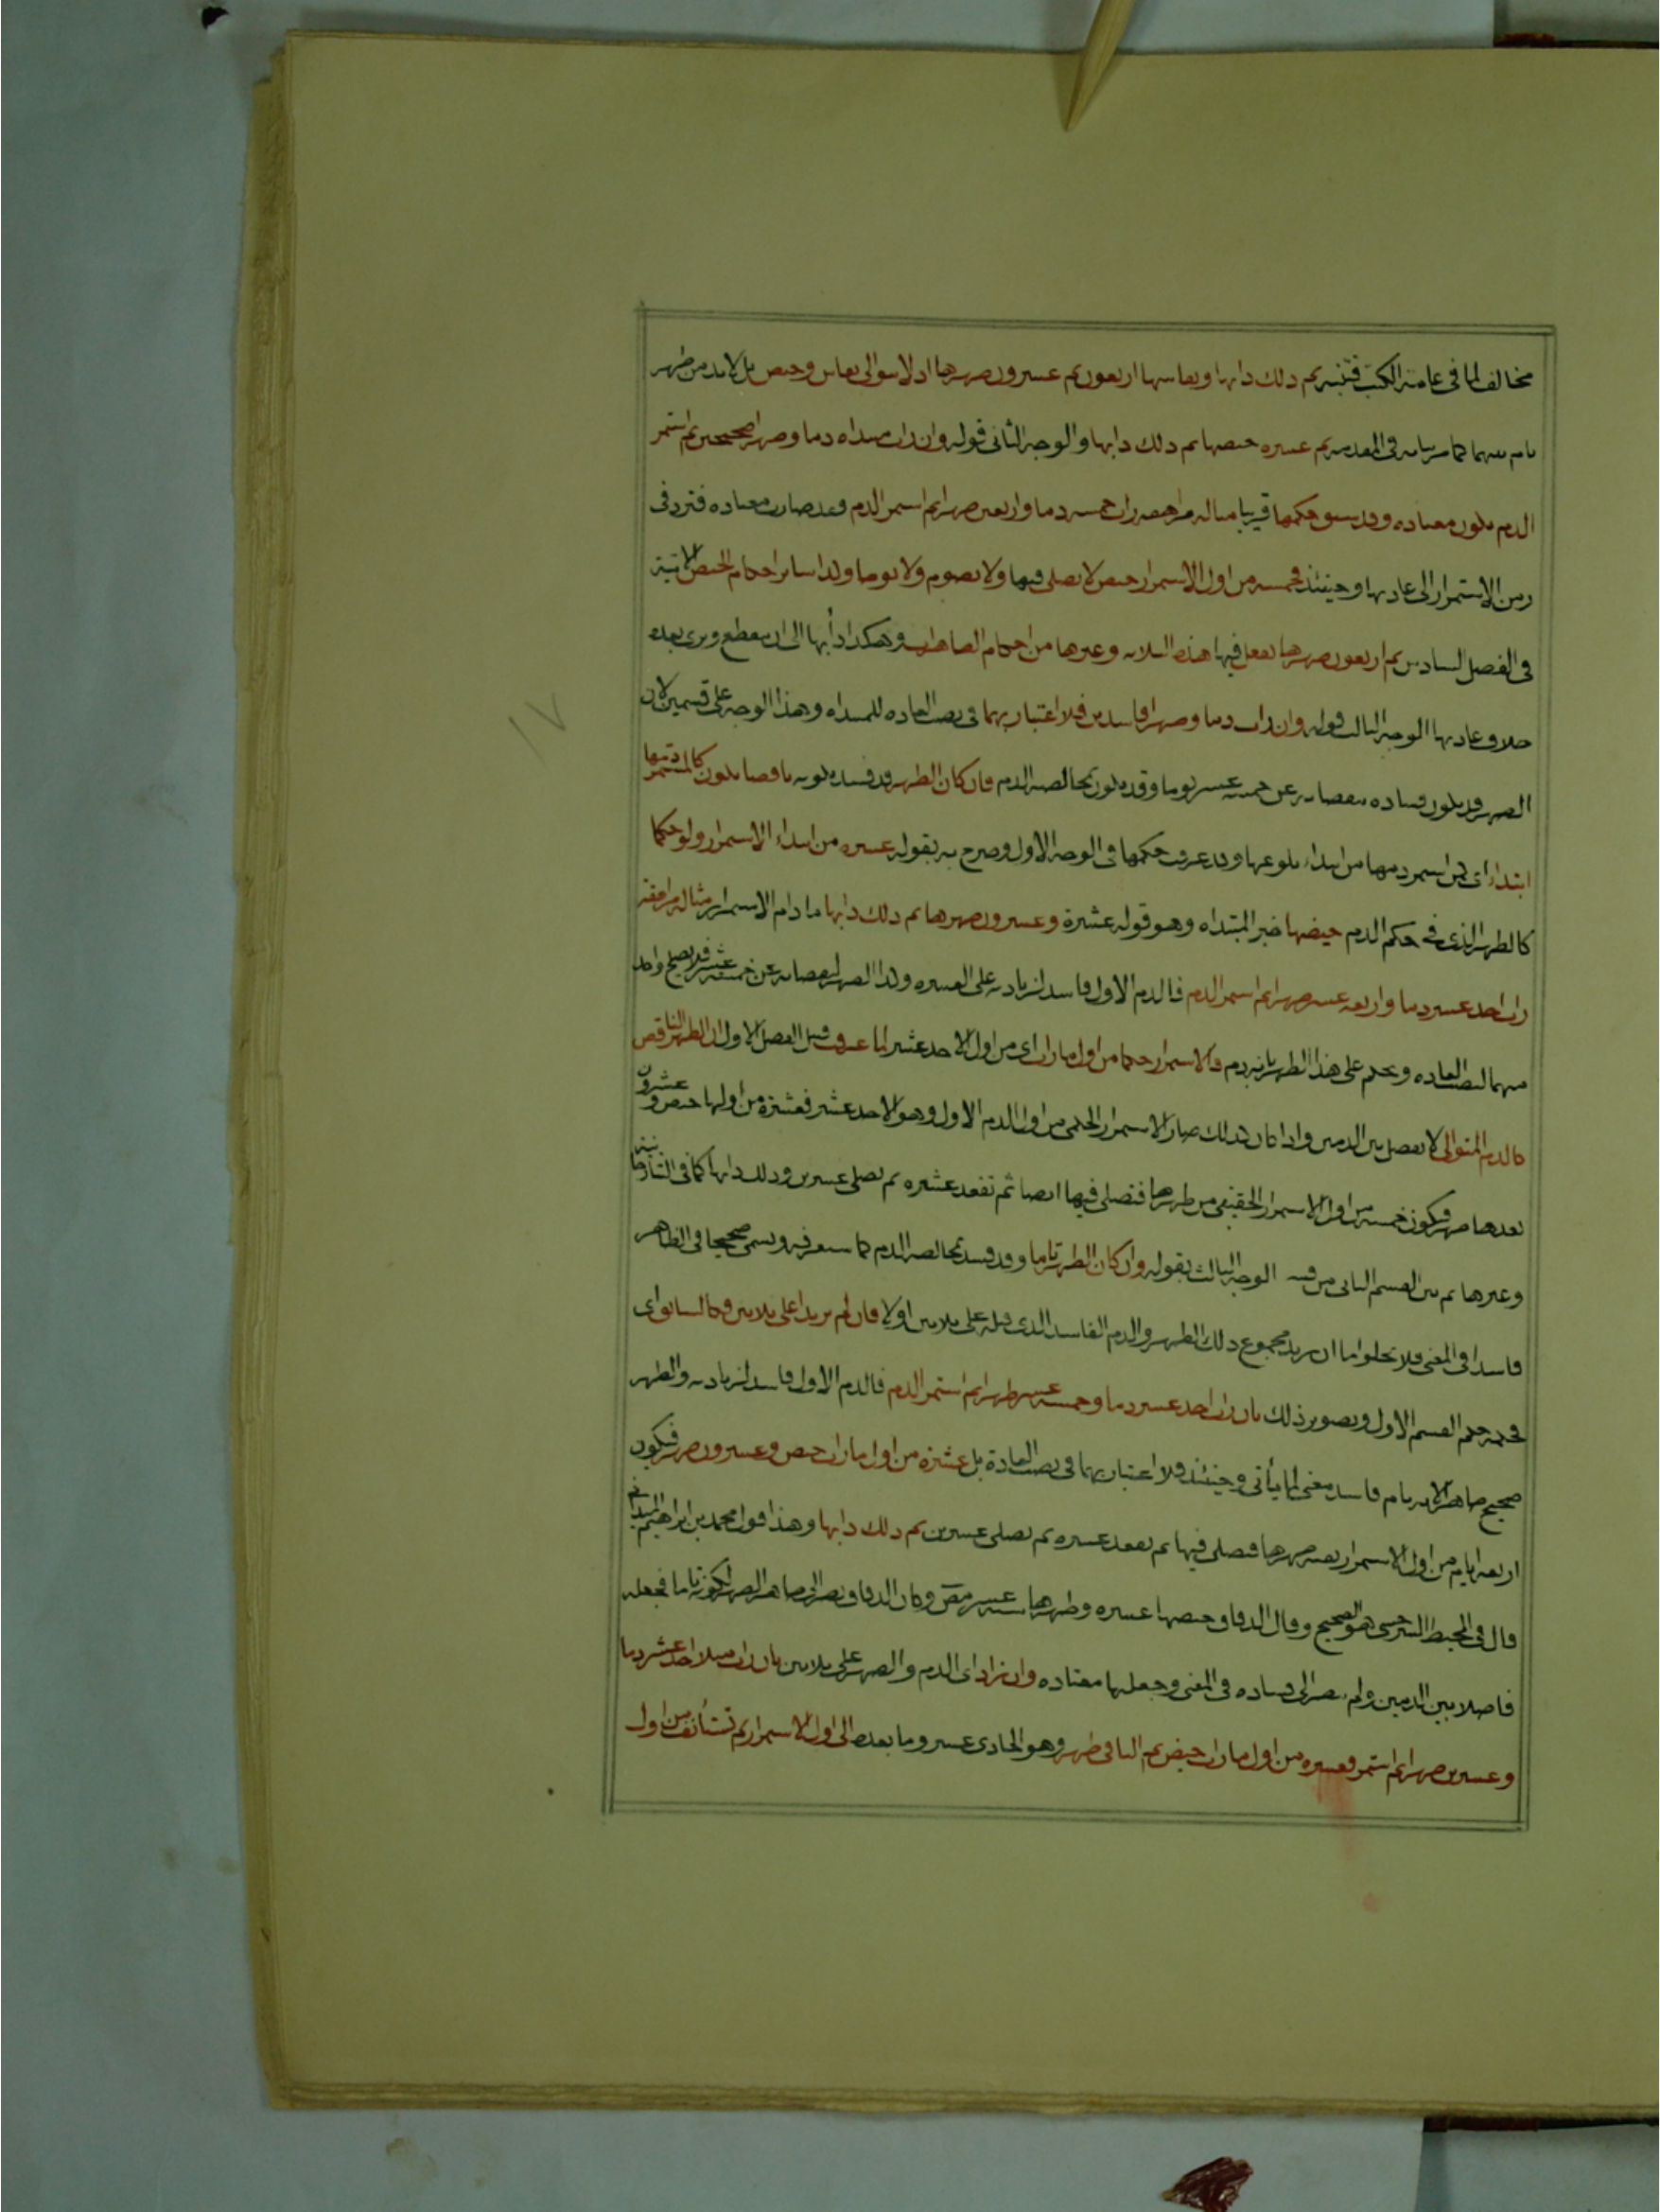 مخالف لما في عامة الكتب فتنبه ثم ذلك دابها ونفاسها اربعون ثم عشرون طهرها اذ لا يتوالى نفاس وحيض بل لابد من طهر
تام بينهما كما مر بيانه في المقدمة ثم عشرة حيضها ثم ذلك دابها والوجه الثاني قوله وان رات مبتداه دما وطهرا صحيحين ثم استمر
الدم تكون معتاده وقد سبق حكمها قريبا مثاله مراهقه رات خمسة دما واربعين طهرا ثم استمر الدم وقد صارت معتاده فترد في
زمن الاستمرار الى عادتها وحينئذ فخمسة من اول الاستمرار حيض لا تصلي فيها ولا تصوم ولا توطا وكذا سائر احكام الحيض الاتية
في الفصل السادس ثم اربعون طهرها تفعل فيها هذه الثلاثه وغيرها من احكام الطاهرات وهكذا دأبها الى ان ينقطع وترى بعده
خلاف عادتها الوجه الثالث قوله وان رات دما وطهرا فاسدين فلا اعتبار بهما في نصب العاده للمبتداه وهذا الوجه على قسمين لان
الطهر قد يكون فساده بنقصانه عن خمسة عشر يوما وقد يكون بمخالطة الدم فان كان الطهر قد فسد بكونه ناقصا تكون كالمستمر دمها
ابتداء اي كمن استمر دمها من ابتداء بلوغها وقد عرفت حكمها في الوجه الاول وصرح به بقوله عشره من ابتداء الاستمرار ولو حكما
كالطهر الذي في حكم الدم حيضها خبر المبتداه وهو قوله عشرة وعشرون طهرها ثم ذلك دابها ما دام الاستمرار مثاله مراهقة
رات احد عشر دما واربعه عشر طهرا ثم استمر الدم فالدم الاول فاسد لزيادته على العشره وكذا الطهر لنقصانه عن خمسة عشر فلا يصلح واحد
منهما لنصب العاده ويحكم على هذا الطهر بانه دم فالاستمرار حكما من اول ما رات اي من اول الاحد عشر لما عرفت قبيل الفصل الاول ان الطهر الناقص
كالدم المتوالي لا يفصل بين الدمين واذا كان كذلك صار الاستمرار الحكمي من اول الدم الاول وهو الاحد عشر فعشرة من اولها حيض وعشرون
بعدها طهر فيكون خمسة من اول الاستمرار الحقيقي من طهرها فتصلي فيها ايضا ثم تقعد عشره ثم تصلي عشرين وذلك دابها كما في التتارخانية
وغيرها ثم بين القسم الثاني من قسمي الوجه الثالث بقوله وان كان الطهر تاما وقد فسد بمخالطة الدم كما ستعرفه ويسمى صحيحا في الظاهر
فاسدا في المعنى فلا يخلو اما ان يزيد مجموع ذلك الطهر والدم الفاسد الذي قبله على ثلاثين او لا فان لم يزيدا على ثلاثين فكالسابق اي
فحكمه حكم القسم الاول وتصوير ذلك بان رات احد عشر دما وخمسة عشر طهرا ثم استمر الدم فالدم الاول فاسد لزيادته والطهر
صحيح ظاهرا لانه تام فاسد معنى لما يأتي وحينئذ فلا اعتبار بهما في نصب العادة بل عشرة من اول ما رات حيض وعشرون طهر فيكون
اربعة ايام من اول الاستمرار بقية طهرها فتصلي فيها ثم تقعد عشره ثم تصلي عشرين ثم ذلك دابها وهذا قول محمد بن ابراهيم الميداني
قال في المحيط السرخسي هو الصحيح وقال الدقاق حيضها عشره وطهرها ستة عشر وكان الدقاق نظر الى ظاهر الطهر لكونه تاما فجعله
فاصلا بين الدمين ولم ينظر الى فساده في المعنى وجعلها معتاده وان زاد اي الدم والطهر على ثلاثين بان رات مثلا احد عشر دما
وعشرين طهرا ثم استمر فعشره من اول ما رات حيض ثم الباقي طهر وهو الحادي عشر وما بعده الى اول الاستمرار ثم تستأنف من اول
١٧